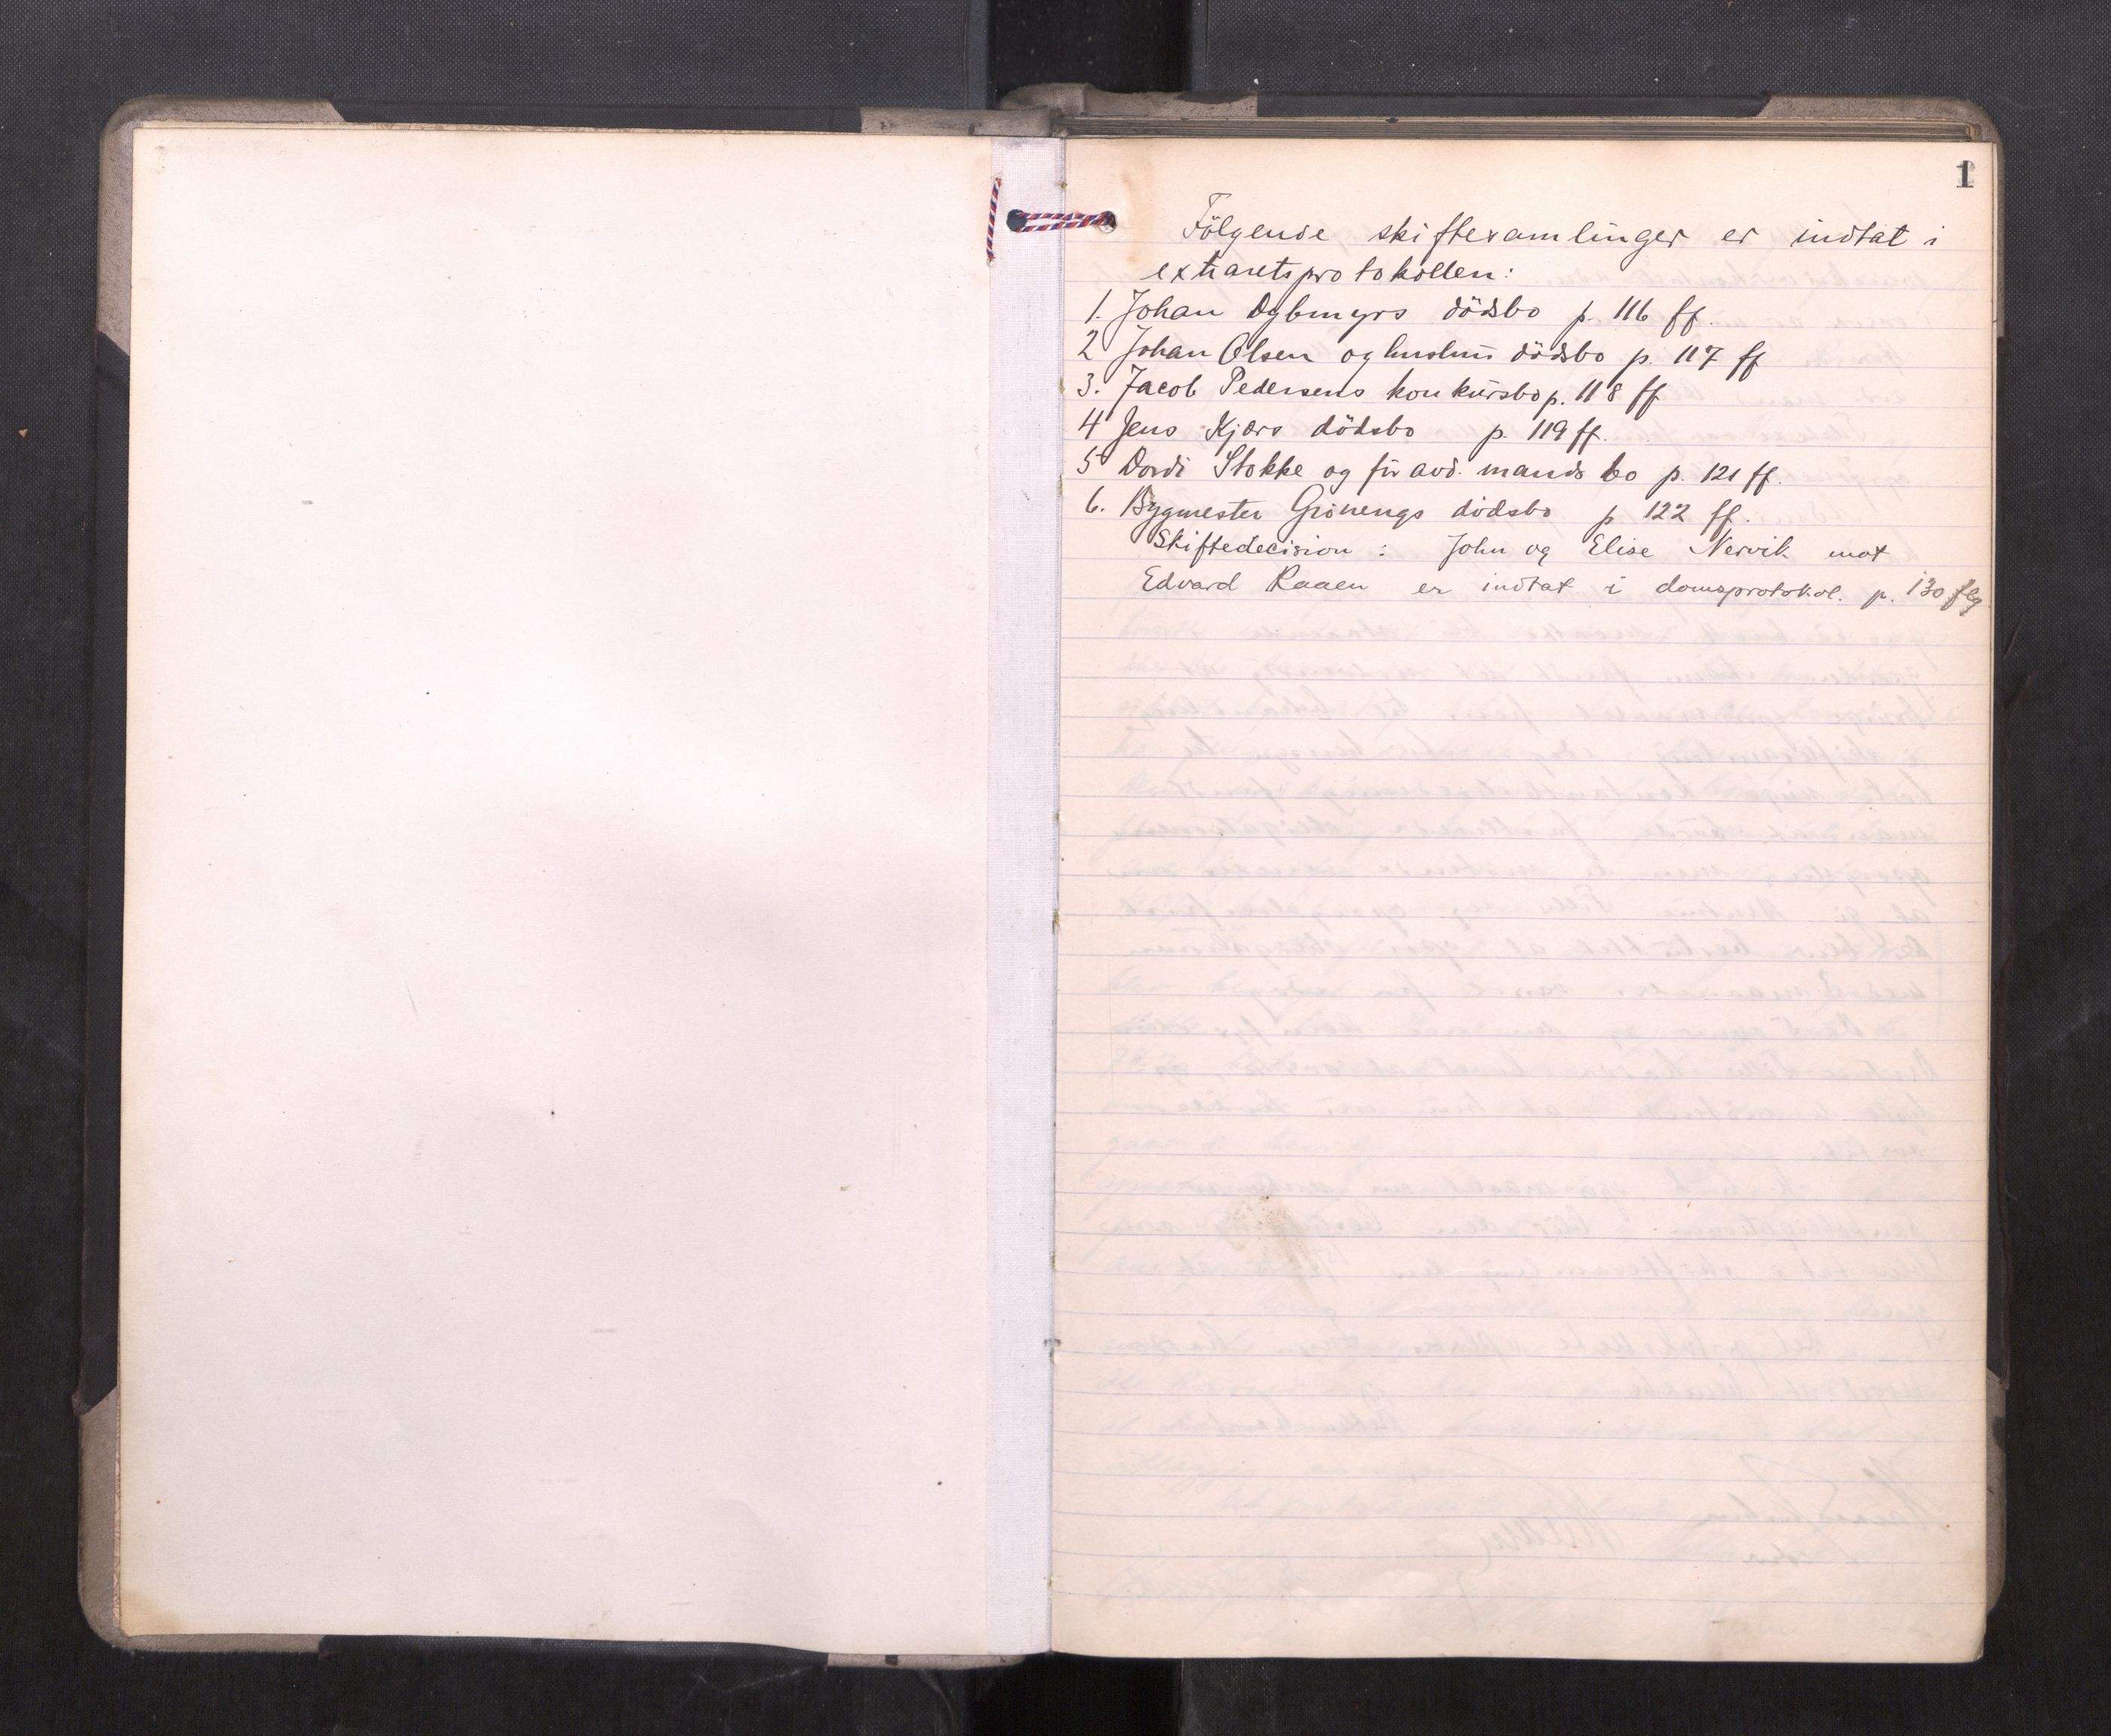 1
Følgende skiftesamlinger er indtat i
extraretsprotokollen:
1. Johan Dybmyrs dödsbo p. 116 ff.
2 Johan Olsen og hustrus dödsbo p. 117 ff
3. Jacob Pedersens konkursbo p. 118 ff
4 Jens Kjærs dödsbo p. 119 ff.
5 Dordi Stokke og før avd. mands bo p. 121 ff.
6. Bygmester Grönengs dödsbo p 122 ff.
Skiftedecision: John og Elise Nervik mot
Edvard Raaen er indtat i domsprotokol. p. 130 flg